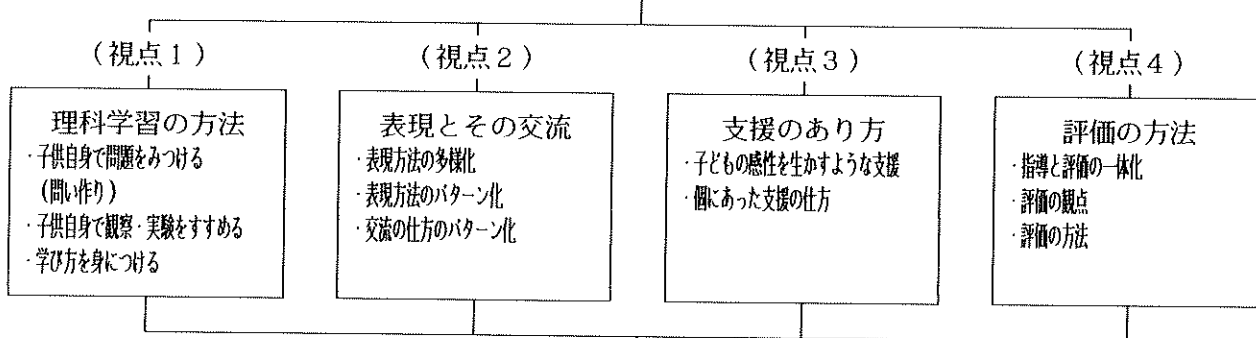 (視点1)
理科学習の方法
・子供自身で問題をみつける
(問い作り)
・子供自身で観察・実験をすすめる
・学び方を身につける
(視点2)
表現とその交流
・表現方法の多様化
・表現方法のパターン化
・交流の仕方のパターン化
(視点3)
支援のあり方
・子どもの感性を生かすような支援
・個にあった支援の仕方
(視点4)
評価の方法
・指導と評価の一体化
・評価の観点
・評価の方法